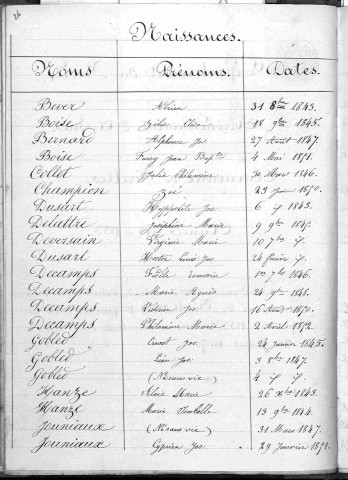 Naissances.
Noms Prénoms. Dates.
Bever Adrien 31 8bre 1843.
Boise Zélie 18 9bre 1845.
Bernard Alphonse Jos. 27 Aout 1847.
Boise Fursy Jean Bapte 4 Mai 1851.
Collot Julie Philomène 30 Mars 1846.
Champion Zoé 23 Juin 1850.
Dusart Hyppolite Jos. 6 1843.
Delattre Joséphine Marie 9 9bre
Deversain Virginie Marie 10 7bre
Dusart Hector Louis Jos. 24 février
Decamps Fidèle Romain 1er 7bre 1846.
Decamps Marie Agnès 24 9bre 1848.
Decamps Victoire Jos. 16 Aout 1850.
Decamps Philomène Marie 2 Avril 1852.
Gobled Ernest Jos. 24 janvier 1845.
Gobled Léon Jos. 3 8bre 1847.
Gobled (Né sans vie) 4
Hanze Marie 26 Xbre 1843.
Hanze Marie Isabelle 13 9bre 1844.
Jouniaux (Né sans vie) 31 Mars 1847.
Jouniaux Cyprien Jos. 29 Janvier 1851.